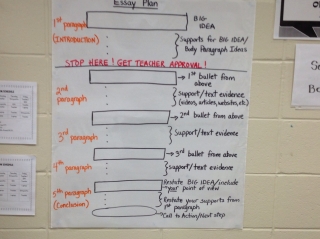 Essay Plan
1st paragraph
(INTRODUCTION)
BIG
IDEA
Supports for BIG IDEA/
Body Paragraph Ideas
STOP HERE! GET TEACHER APPROVAL!
1st bullet from
above
2nd
paragraph
Support/text evidence
(videos, articles, website, etc.)
2nd bullet from above
3rd
paragraph
Support/text evidence
3rd bullet from above
4th
paragraph
Support/text evidence
5th
paragraph
(Conclusion)
Restate BIG IDEA/include
your point of view
Restate your supports from
1st paragraph
Call to Action/Next step